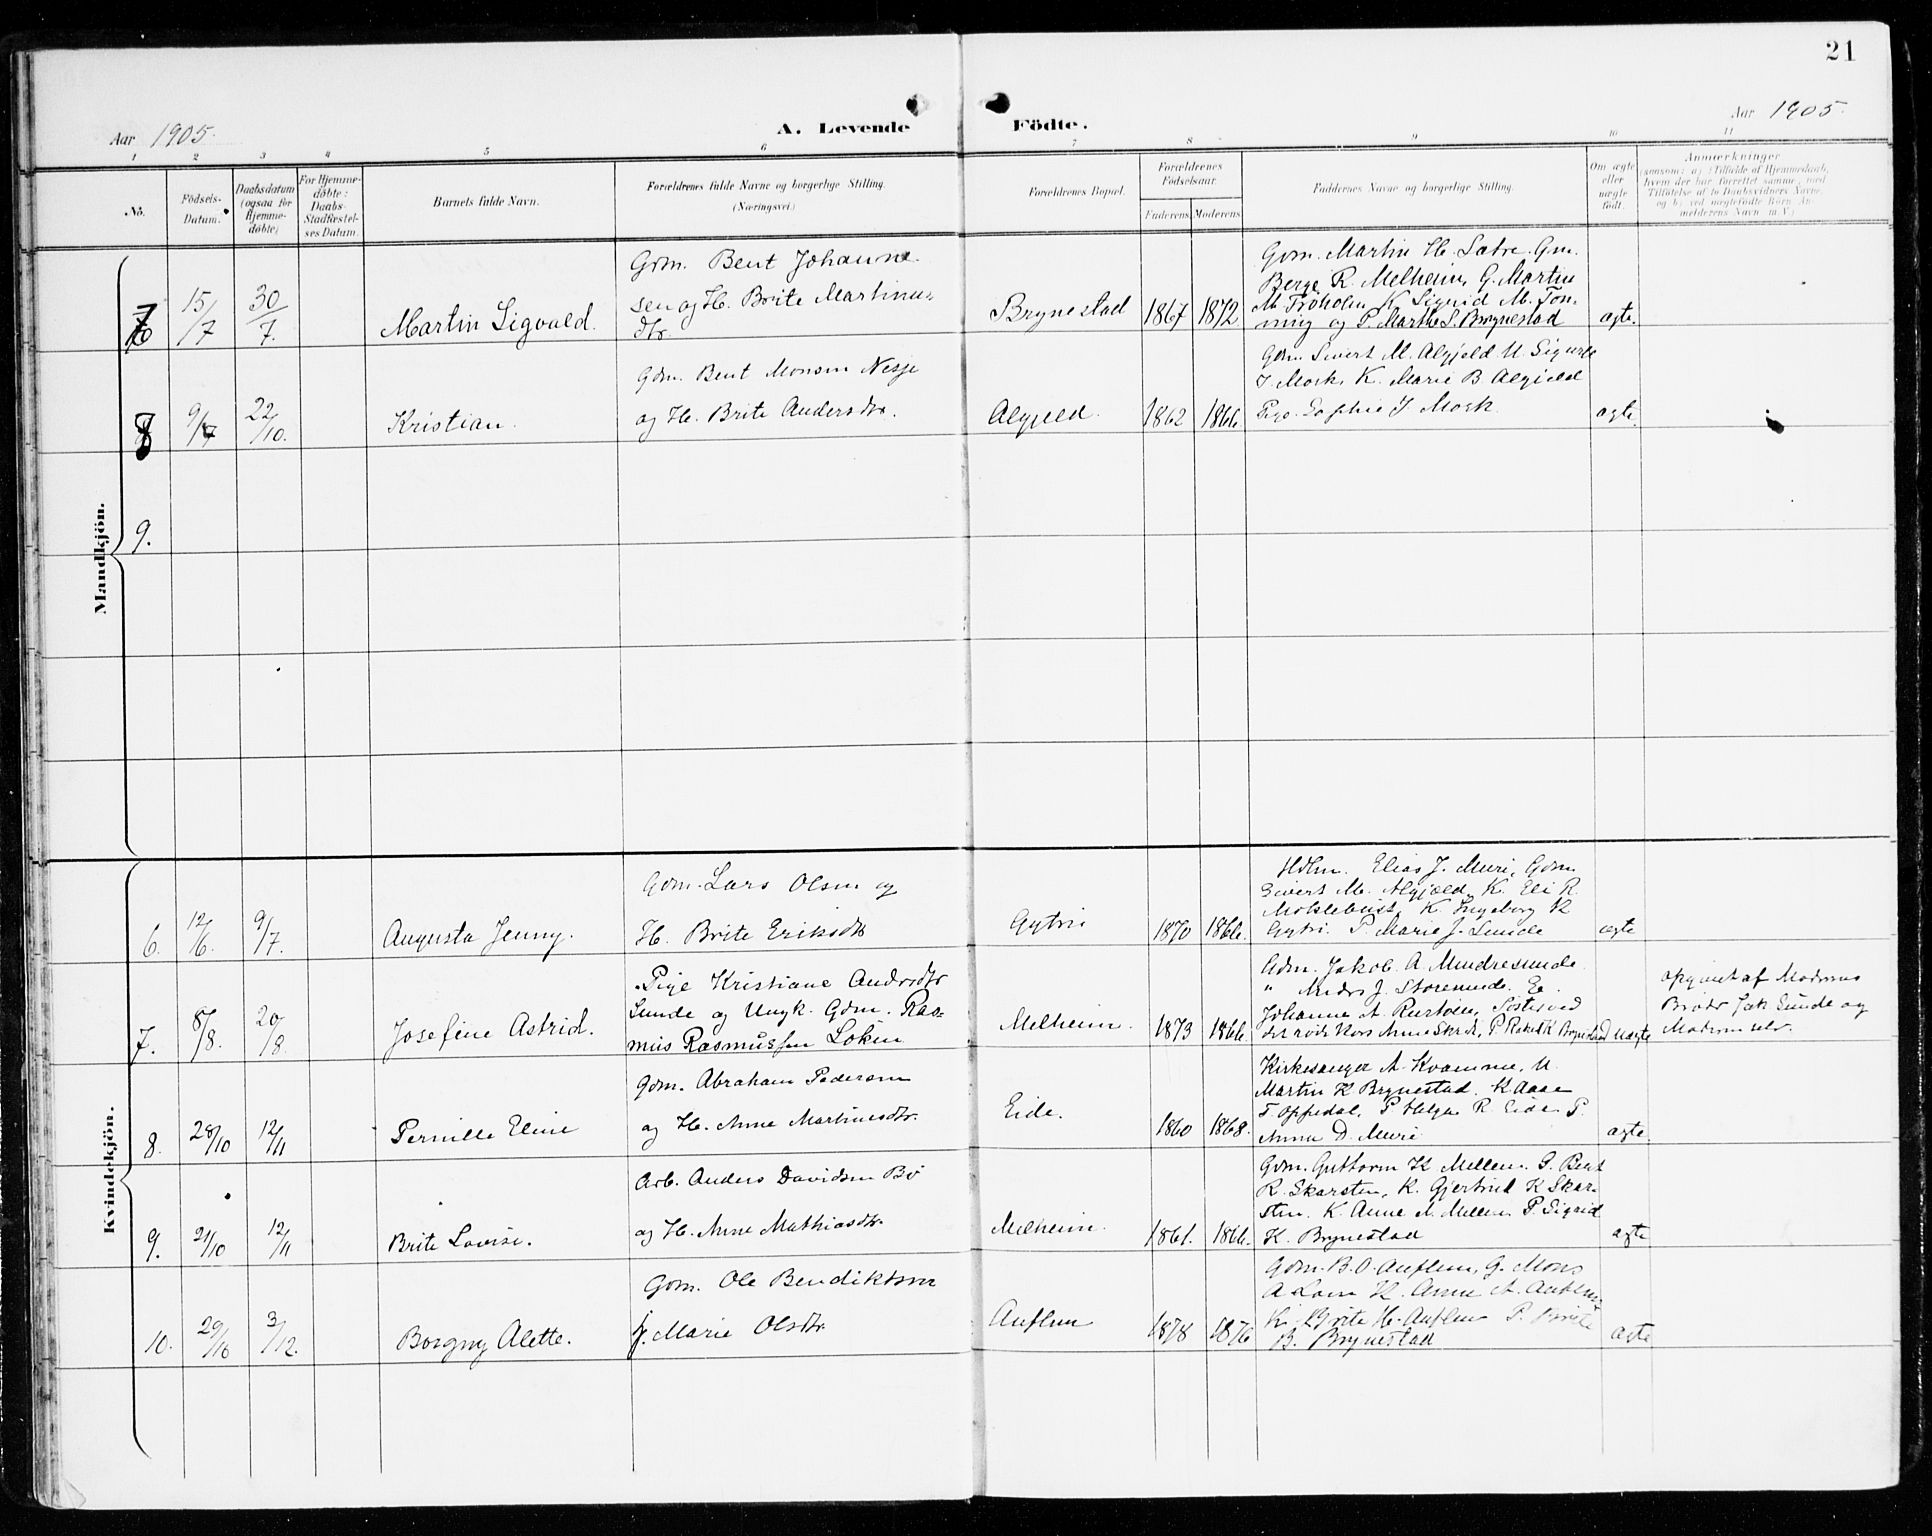 21
Aar 1905.
A. Levende Födte.
Aar 1905.
1 2 3 4 5 6 7 8 9 10 11
No.
Födsels-
Datum.
Daabsdatum
(ogsaa for
Hjemme-
döbte)
For Hjemme-
döbte:
Daabs-
Stadfæstel-
ses Datum.
Barnets fulde Navn.
Forældrenes fulde Navne og borgerlige Stilling.
(Næringsvei.)
Forældrenes Bopæl.
Forældrenes
Födselsaar.
Faderens Moderens
Faddernes Navne og borgerlig Stilling.
Om ægte
eller
uægte
födt.
Anmærkninger
(saasom: a) i Tilfælde af Hjemmedaab,
hvem der har forrettet samme, med
Tilföielse af to Daabsvidners Navne,
og b) ved uægtefödte Börn An-
melderens Navn m. V.)
Mandkjön.
7
15/7
30/7.
Martin Sigvald.
Gdm. Bent Johanne
sen og H. Brite Martinus-
dtr.
Brynestad
1867 1872
Gdm. Martin H. Sætre. Gm.
Berge R. Melheim, G. Martin
M. Froholm K. Sigrid M. Ton-
ning og P. Marthe S. Brynestad
ægte.
8
9/7
22/10.
Kristian.
Gdm. Bent Monsen Nesje
og H. Brite Andersdtr.
Algjeld.
1862 1866.
Gdm. Sivert M. Algjeld U. Sigurd
J. Mork, K. Marie B Algjeld
Pige Sophie J Mork.
ægte.
9.
Kvindekjön.
6.
12/6.
9/7.
Augusta Jenny.
Gdm. Lars Olsen og
H. Brite Eriksdtr
Gytri
1870 1866.
Hdlm. Elias J. Muri, Gdm
Sivert M. Algjeld, K. Eli R.
Moklebust, K. Ingeborg K
Gytri. P. Marie J. Sunde
ægte
7.
8/8.
20/8.
Josefine Astrid.
Pige Kristiane Andrsdtr
Sunde og Ungk. Gdm. Ras-
mus Rasmussen Løken
Melheim.
1873 1866.
Gdm. Jakob A. Mindresunde
" Anders J. Storesunde. E.
Johanne A. Rustøen, Søster ved
det røde Kors Anne Skr.
Brynestad uægte
opgivet af Moderens
Broder Jak Sunde og
Moderen selv.
8.
28/10
12/11
Pernille Eline
Gdm. Abraham Pedersen
og H. Anne Martinusdtr.
Eide.
1860 1868.
Kirkesanger A. Kvamme, U.
Martin K Brynestad. K Aase
T. Oppedal, P Helga R. Eide P.
Anna D. Muri
ægte
9.
21/10
12/11
Brite Lovise.
Arb. Anders Davidsen Bø
og H. Anne Mathiasdtr.
Melheim.
1861. 1866.
Gdm. Guttorm K Mellem. G. Bent
R. Skarsten, K. Gjertrud K Skar-
sten. K. Anne A. Mellem P. Sigrid
K. Brynestad
ægte
10.
29/10
3/12.
Borgny Alette.
Gdm. Ole Bendiktsen
H. Marie Olsdtr
Auflem
1878 1876
Gdm. B. O. Auflem, G. Mons
A Loen K. Anne A. Auflem
K. Brite H. Auflem P. Brite
B. Brynestad
ægte